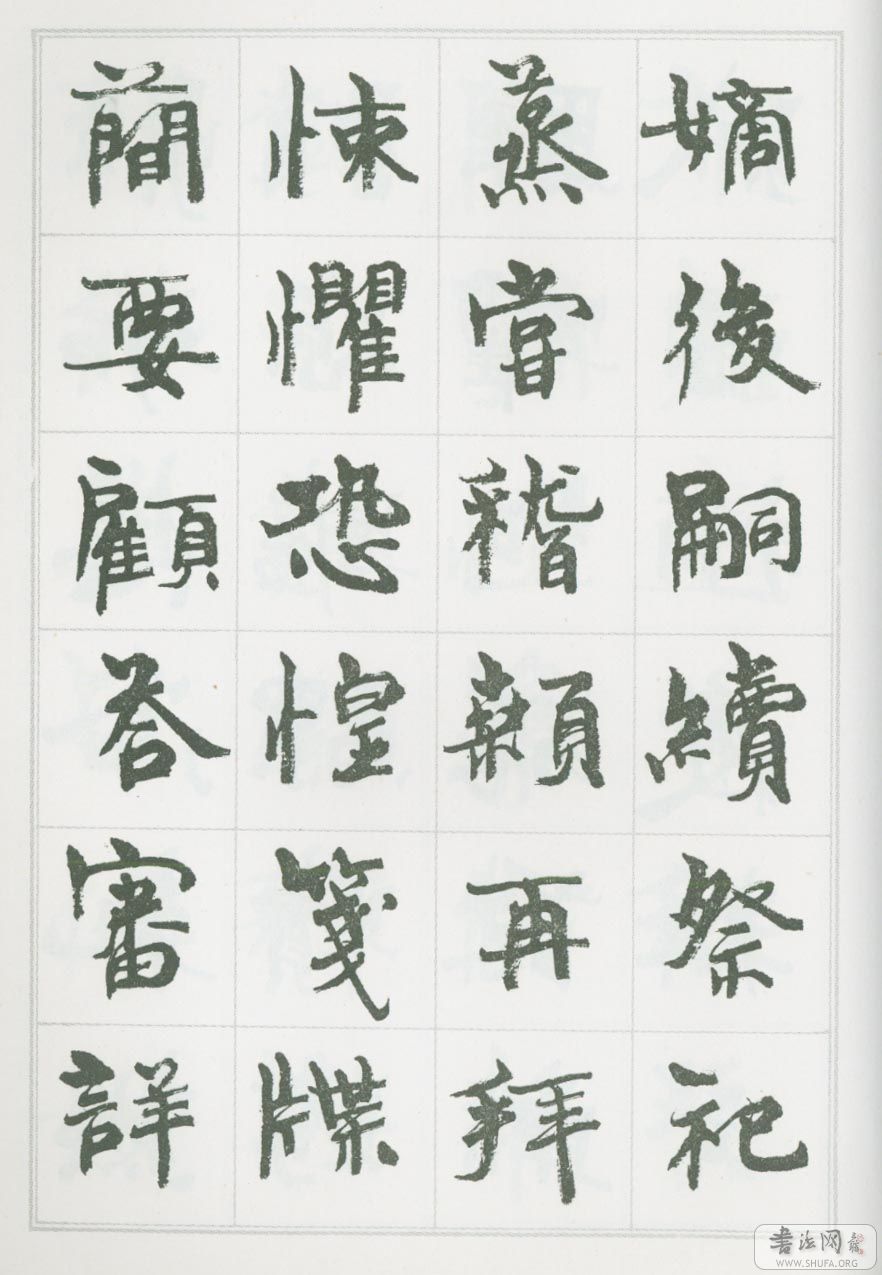 嫡後嗣續祭祀
蒸嘗稽顙再拜
悚懼恐惶箋牒
蕳要顧荅審詳
書法网
WWW.SHUFA.ORG